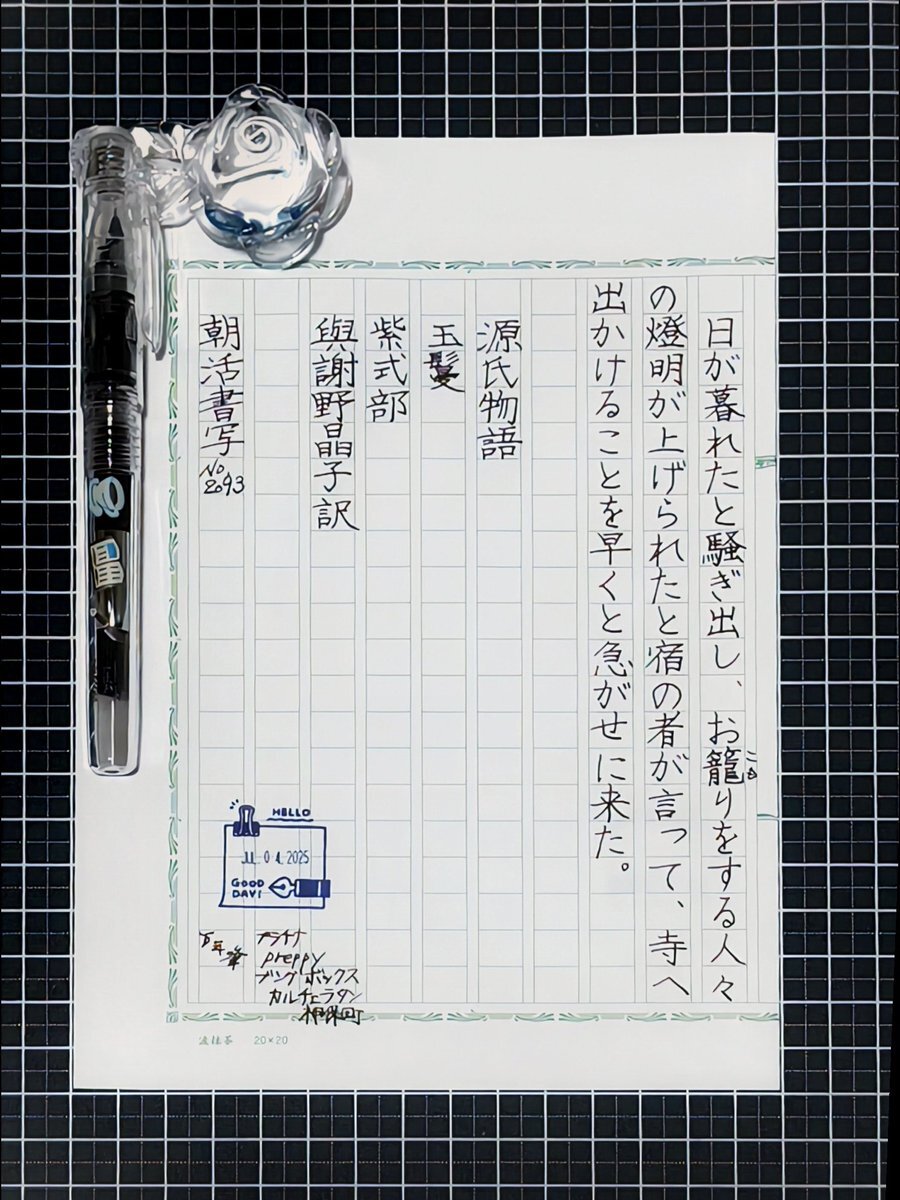 日が暮れたと騒ぎ出し、お籠りをする人々
こも
の燈明が上げられたと宿の者が言って、寺へ
出かけることを早くと急がせに来た。
源氏物語
玉鬘
紫式部
與謝野晶子訳
朝活書写
No
2093
HELLO
JUL. 04. 2025
GOOD
DAY!
万年筆
プラチナ
preppy
ブングボックス
カルチェラタン
神保町
20×20